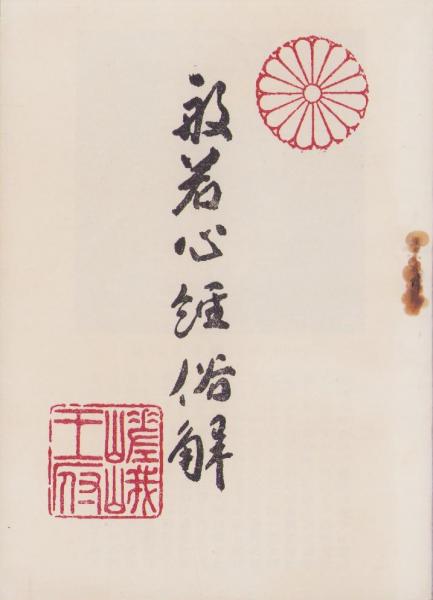 般若心経俗解
嵯峨
王府